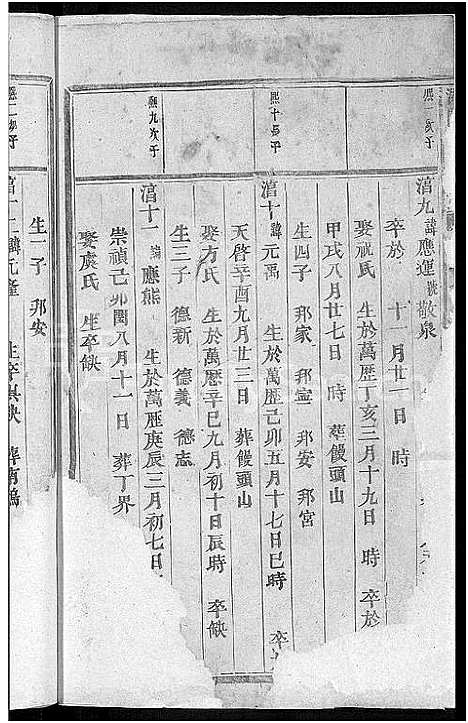 熙一次子
湻九 諱應運 號敬泉
卒於 十一月廿一日 時
娶祝氏 生於萬歷丁亥三月十九日 時 卒於
甲戌八月廿七日 時 葬饅頭山
生四子 邦家 邦寧 邦安 邦宮
熙十長子
湻十 諱元萬 生於萬歷己卯五月十七日巳時 卒
天啓辛酉九月廿三日 葬饅頭山
娶方氏 生於萬歷辛巳九月初十日辰時 卒缺
生三子 德新 德義 德志
熙九次子
湻十一 諱應熊 生於萬歷庚辰三月初七日
崇禎己卯閏八月十一日 葬丁界
娶虞氏 生卒缺
生一子 邦安
諱元 生卒俱缺 葬南塢